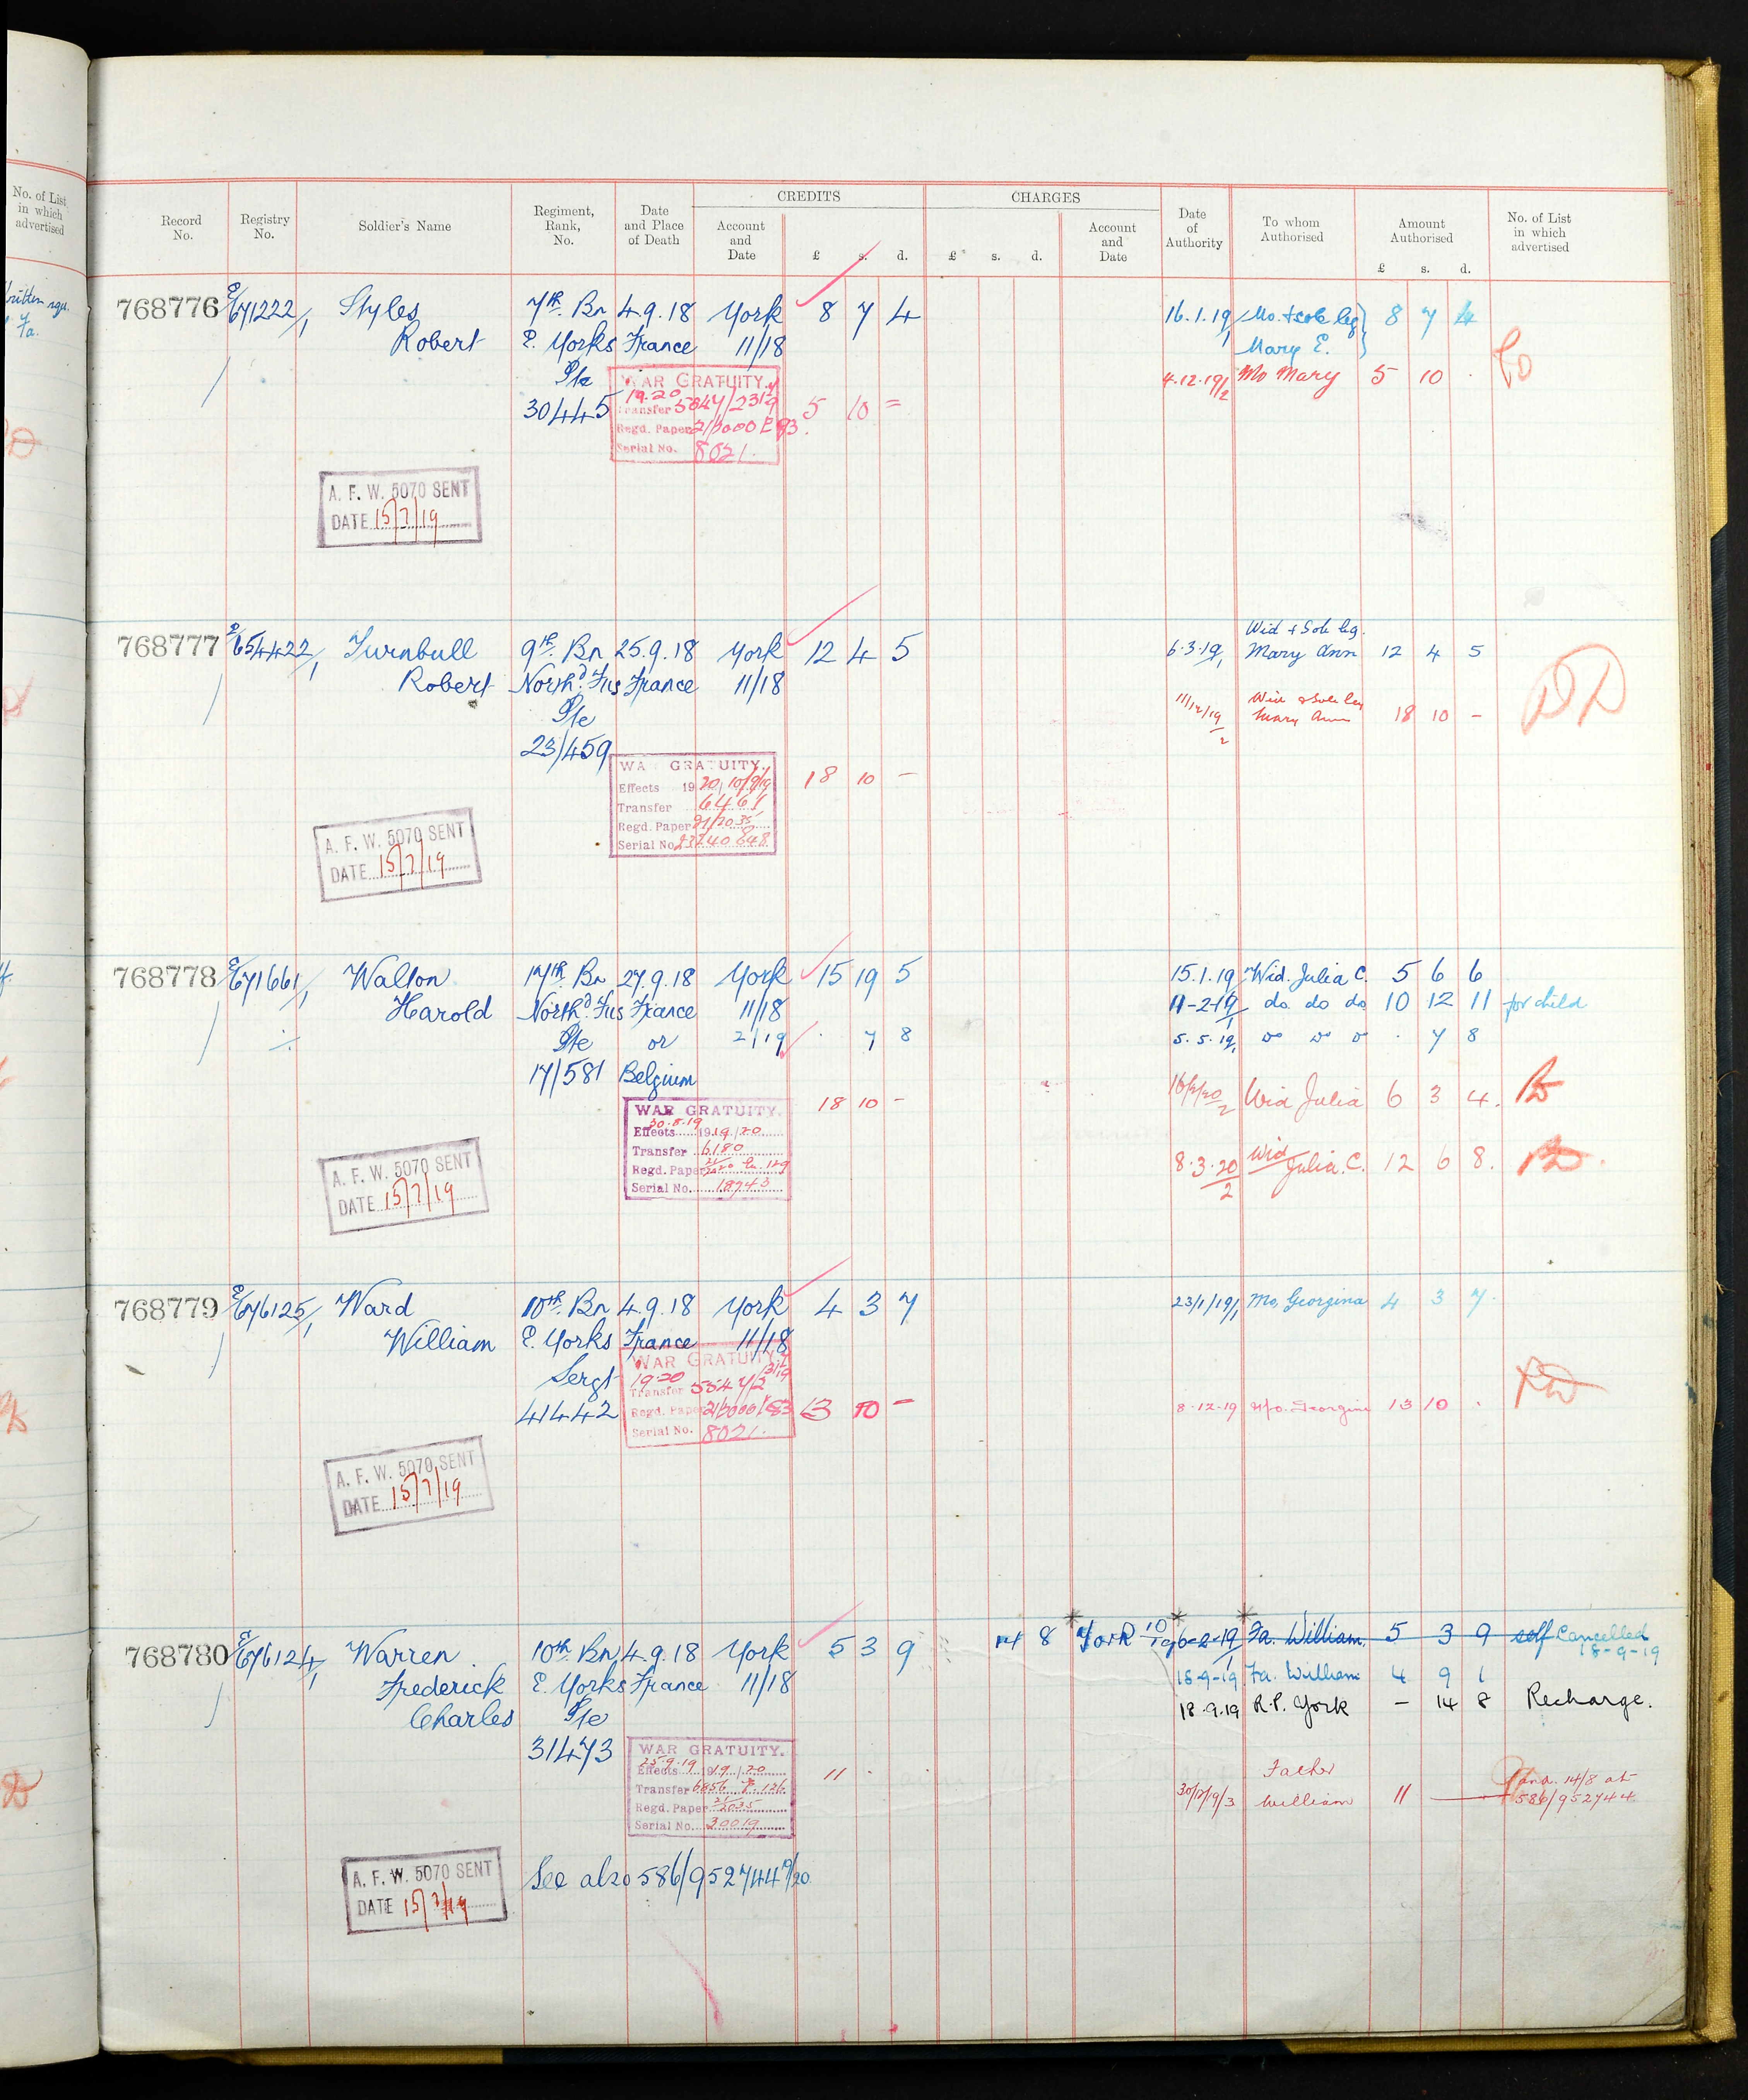 No. of List
in which
advertised
Record
No.
Registry
No.
Soldier's Name
Regiment,
Rank,
No.
Date
and Place
of Death
CREDITS
Account
and
Date
£ s. d.
CHARGES
£ s. d.
Account
and
Date
Date
of
Authority
To whom
Authorised
Amount
Authorised
£ s. d.
No. of List
in which
advertised
768776 E/671222/1 Styles 7th Bn 4.9.18 York 8 7 4 16.1.19/1 Mo. & sole leg 8 7 4
Robert E. Yorks France 11/18 Mary E.
Pte WAR GRATUITY 4.12.19/2 Mo Mary 5 10 .
30445 19.20 5 10 =
Transfer
Regd. Paper
Serial No. 8021.
A. F. W. 5070 SENT
DATE 15/7/19
768777 654422/1 Turnbull 9th Bn 25.9.18 York 12 4 5 6.3.19/1 Wid & Sole leg. Mary Ann 12 4 5
Robert North'd Fus France 11/18
Pte 11/12/19/2 Wid & Sole leg Mary Ann 18 10 - DD
23/459
WAR GRATUITY. 18 10 -
Effects 19
Transfer 6461
Regd. Paper 21/2035
Serial No.
A. F. W. 5070 SENT
DATE 15/7/19
768778 E/671661/1 Walton 17th Bn 27.9.18 York 15 19 5 15.1.19 Wid. Julia C. 5 6 6
Harold North'd Fus France 11/18 11-2-19/1 do do do 10 12 11 for child
Pte or 2/19 . 7 8 5.5.19/1 do do do . 7 8
17/581 Belgium
WAR GRATUITY. 18 10 - Wid Julia 6 3 4.
30.8.19
Effects 1919/20
Transfer 6180 8.3.20/2 Wid Julia C. 12 6 8.
Regd. Paper
Serial No. 18743
A. F. W. 5070 SENT
DATE 15/7/19
768779 E/676125/1 Ward 10th Bn 4.9.18 York 4 3 7 23/1/19/1 Mo, Georgina 4 3 7.
William E. Yorks France 11/18
Sergt WAR GRATUITY
41442 19.20 13 10 - 8.12.19 Mo. Georgina 13 10 .
Transfer
Regd. Paper
Serial No. 8021.
A. F. W. 5070 SENT
DATE 15/7/19
768780 E/676124/1 Warren 10th Bn 4.9.18 York 5 3 9 14 8 York 10/19 6-2-19/1 Fa. William. 5 3 9 self Cancelled 18-9-19
Frederick E. Yorks France 11/18 18-9-19 Fa. William 4 9 1
Charles Pte 18.9.19 R.P. York - 14 8 Recharge.
31473
WAR GRATUITY. 11 . .
25-9-19
Effects 1919/20 30/12/19/3 Father William 11 and. 14/8 at 586/952744
Transfer 6856
Regd. Paper 21/2035
Serial No. 20019
See also 586/952744 9/20
A. F. W. 5070 SENT
DATE 15/7/19